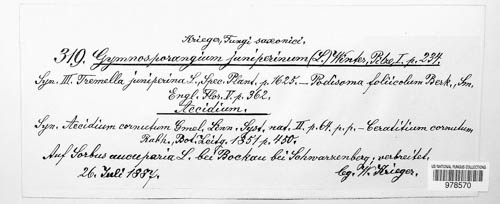 Krieger, Fungi saxonici.
319. Gymnosporangium juniperinum (L.) Winter, Pilze I. p. 234.
Syn. III. Tremella juniperina L., Spec. Plant. p. 1625. – Podisoma foliicolum Berk., Sm.
Engl. Flor. V. p. 362.
Aecidium.
Syn. Aecidium cornutum Gmel. Linn. Syst. nat. II. p. 64. p. p. – Ceratitium cornutum
Rabh., Bot. Zeitg. 1851 p. 450.
Auf Sorbus aucuparia L. bei Bockau bei Schwarzenberg; verbreitet.
26. Juli 1887.
lg. W. Krieger.
US NATIONAL FUNGUS COLLECTIONS
978570